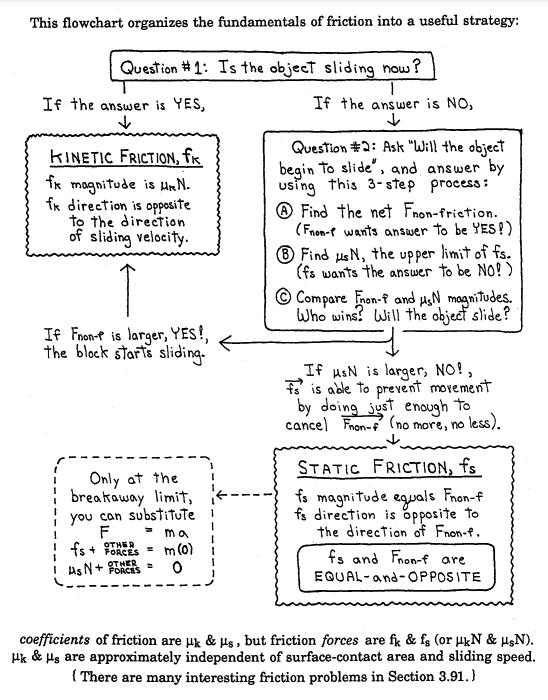 This flowchart organizes the fundamentals of friction into a useful strategy:
Question #1: Is the object sliding now?
If the answer is YES,
If the answer is NO,
KINETIC FRICTION, fk
fk magnitude is μkN.
fk direction is opposite
to the direction
of sliding velocity.
Question #2: Ask "Will the object
begin to slide", and answer by
using this 3-step process:
Ⓐ Find the net Fnon-friction.
(Fnon-f wants answer to be YES!)
Ⓑ Find μsN, the upper limit of fs.
(fs wants the answer to be NO!)
Ⓒ Compare Fnon-f and μsN magnitudes.
Who wins? Will the object slide?
If Fnon-f is larger, YES!,
the block starts sliding.
If μsN is larger, NO!,
fs is able to prevent movement
by doing just enough to
cancel Fnon-f (no more, no less).
STATIC FRICTION, fs
fs magnitude equals Fnon-f
fs direction is opposite to
the direction of Fnon-f.
fs and Fnon-f are
EQUAL-and-OPPOSITE
Only at the
breakaway limit,
you can substitute
F = ma
fs + OTHER FORCES = m(0)
μsN + OTHER FORCES = 0
coefficients of friction are μk & μs, but friction forces are fk & fs (or μkN & μsN).
μk & μs are approximately independent of surface-contact area and sliding speed.
{ There are many interesting friction problems in Section 3.91. }